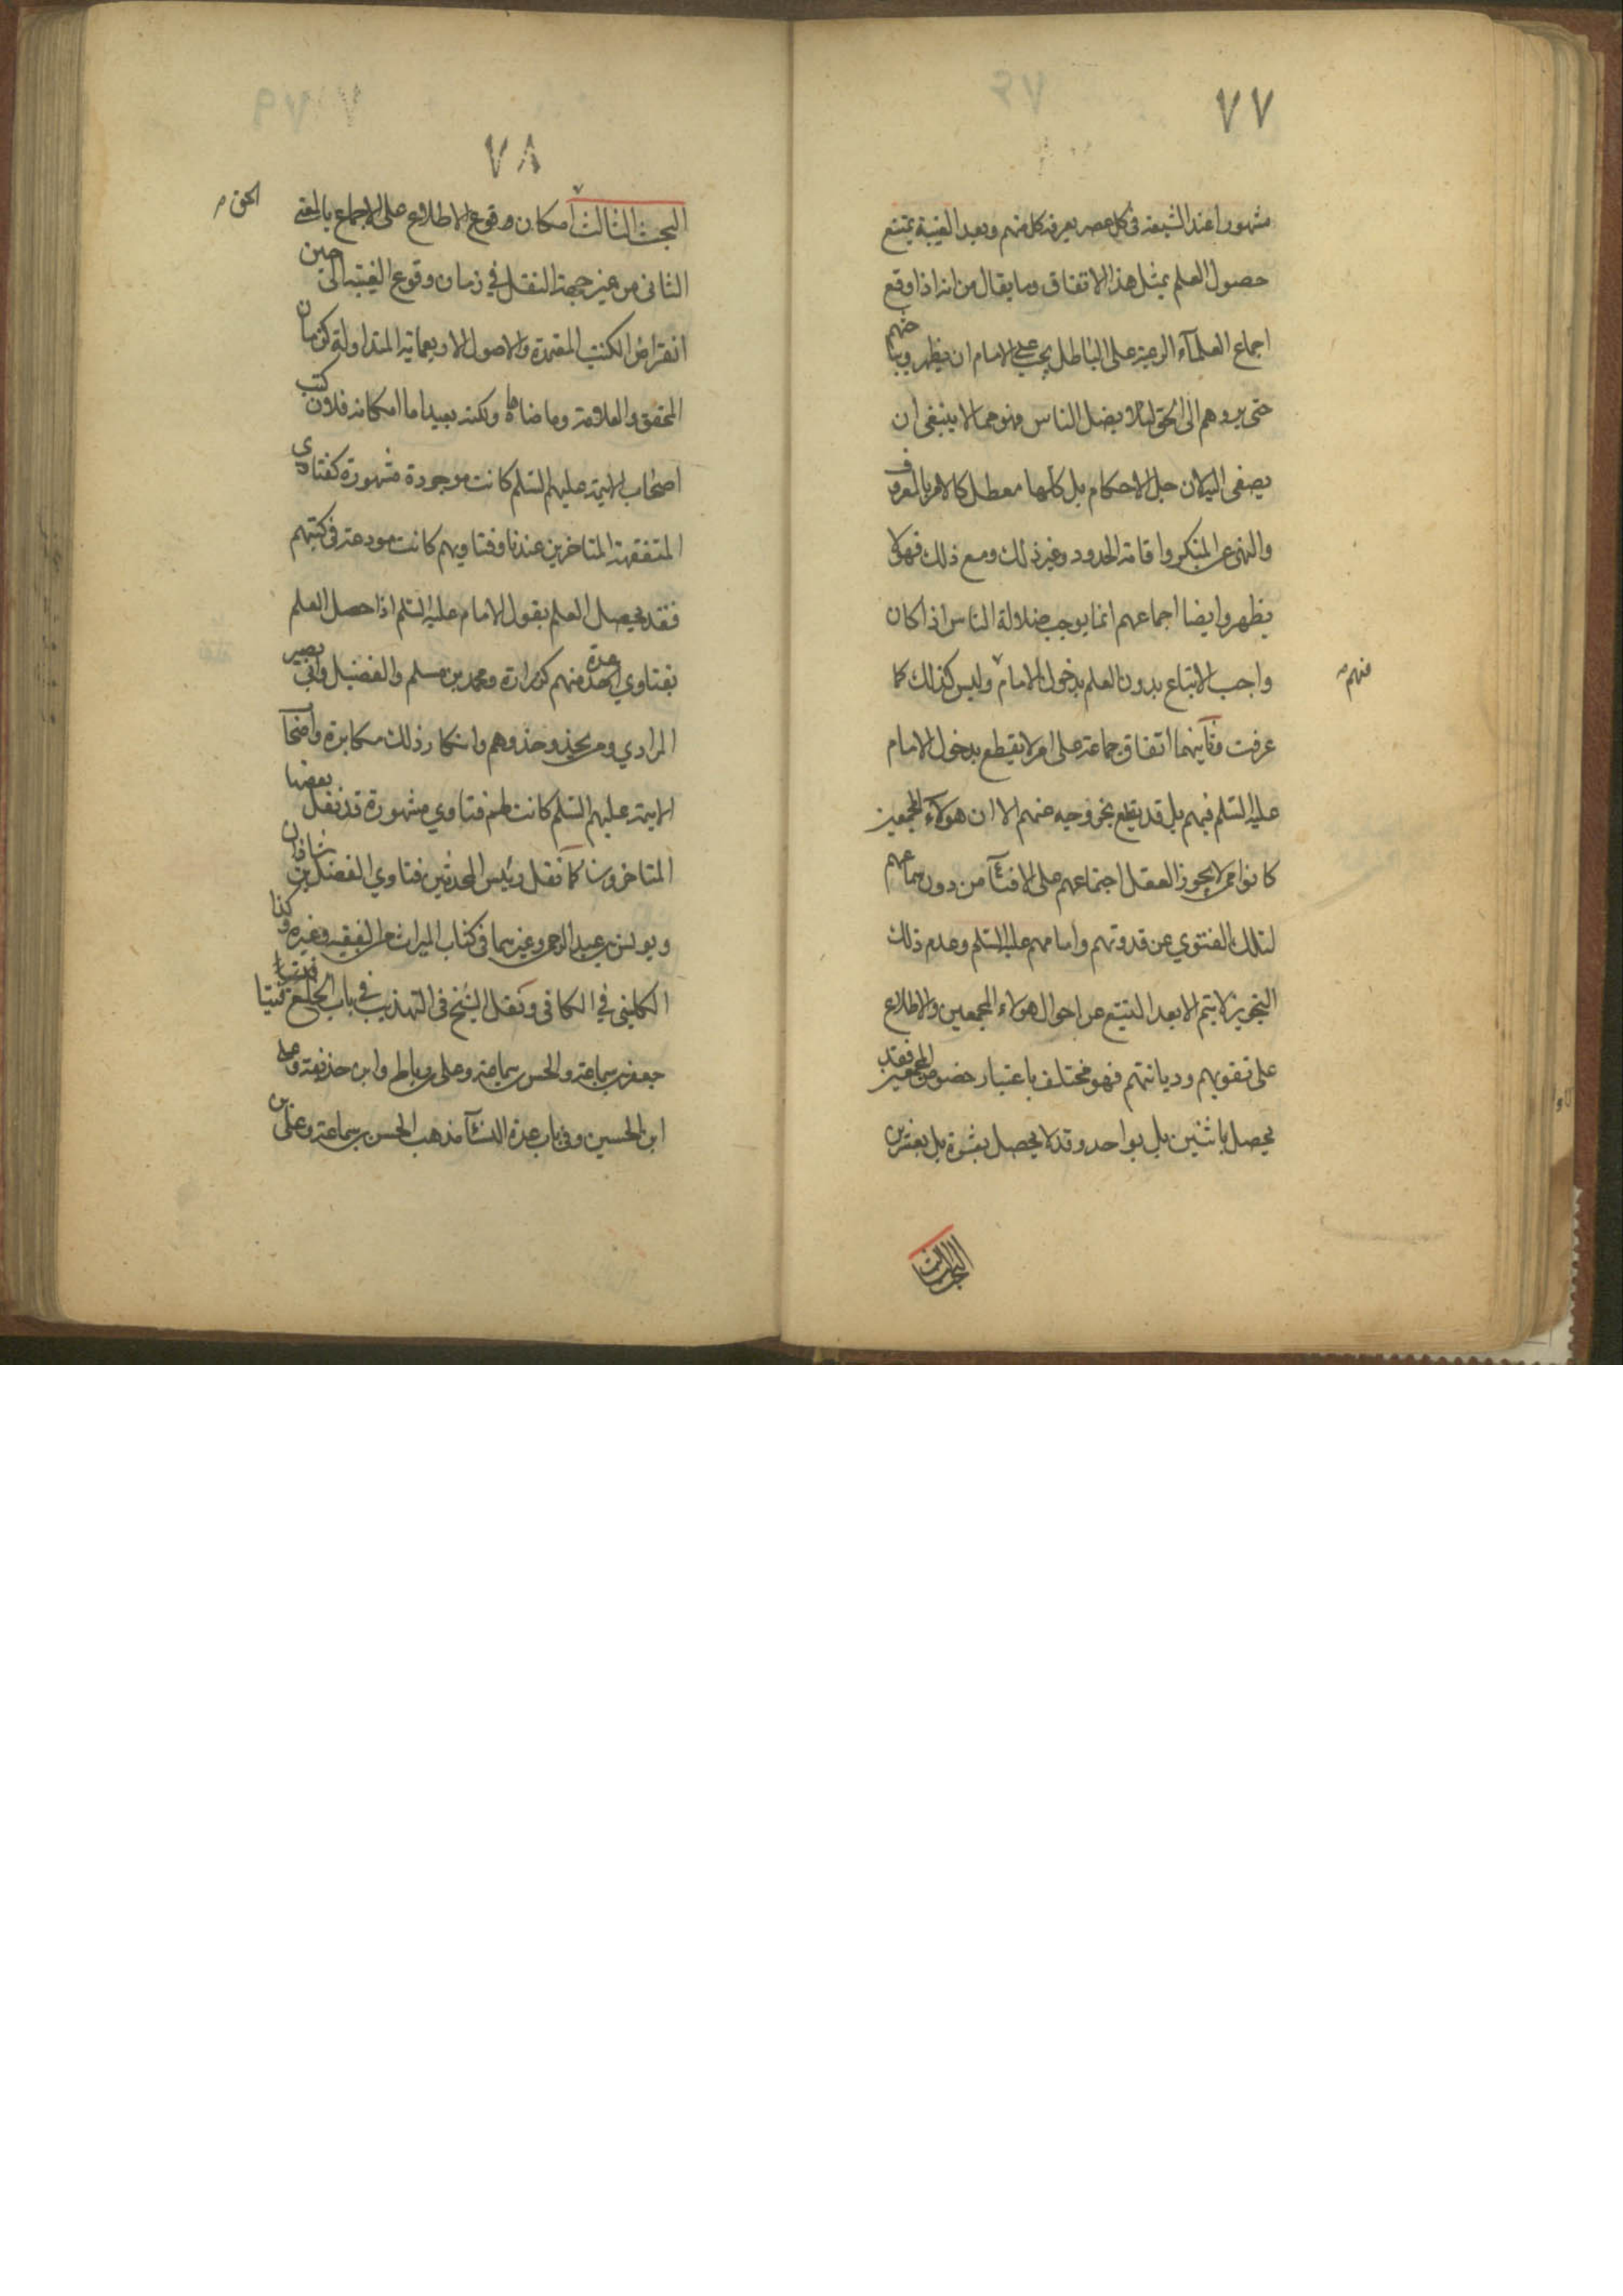 ٧٧
مشهورا عند الشيعة فى كل عصر يعرفه كل منهم وبعد الغيبة يمتنع
حصول العلم بمثل هذا الاتفاق وما يقال من انه اذا وقع
اجماع العلماء الرعية على الباطل يجب على الامام ان يظهر ويباحثهم
حتى يردهم الى الحق لئلا يضل الناس فهو مما لا ينبغى ان
يصغى اليه لان جل الاحكام بل كلها معطل كالامر بالمعروف
والنهى عن المنكر واقامة الحدود وغير ذلك ومع ذلك فهو لا
يظهر وايضا اجماعهم انما يوجب ضلالة الناس اذا كان
واجب الاتباع بدون العلم بدخول الامام وليس كذلك كما
منهم
عرفت وثانيهما اتفاق جماعة على امر لا يقطع بدخول الامام
عليه السلم فيهم بل قد يقطع بخروجه عنهم الا ان هؤلاء المجمعين
كانوا ممن لا يجوز العقل اجتماعهم على الافتاء من دون سماعهم
لتلك الفتوي عن قدوتهم وامامهم عليه السلم وعدم ذلك
التجويز لا يتم الا بعد التتبع عن احوال هؤلاء المجمعين والاطلاع
على تقويهم وديانتهم فهو مختلف باعتبار خصوص المجمعين فقد
يحصل باثنين بل بواحد وقد لا يحصل بعشرة بل بعشرين
البحث الثالث
٧٨
البحث الثالث امكان وقوع الاطلاع على الاجماع بالمعنى
الحق
الثانى من غير جهة النقل في زمان وقوع الغيبة الى حين
انقراض الكتب المعتمدة والاصول الاربعمائة المتداولة كزمان
المحقق والعلامة وما ضاهاه ولكنه بعيد اما امكانه فلان كتب
اصحاب الائمة عليهم السلم كانت موجودة مشهورة كفتاوي
المتفقهة المتاخرين عندنا وفتاويهم كانت مودعة فى كتبهم
فقد يحصل العلم بقول الامام عليه السلم اذا حصل العلم
بفتاوي عدة منهم كزرارة ومحمد بن مسلم والفضيل وابي بصير
المرادي ومن يحذو حذوهم وانكار ذلك مكابرة واصحاب
الائمة عليهم السلم كانت لهم فتاوي مشهورة قد نقل بعضها
المتاخرون كما نقل رئيس المحدثين فتاوي الفضل بن شاذان
ويونس بن عبد الرحمن وغيرهما فى كتاب الميراث من الفقيه وغيره وكذا
الكلينى في الكافى ونقل الشيخ فى التهذيب فى باب الخلع فتيا
جعفر بن سماعة والحسن بن سماعة وعلى بن رباط وابن حذيفة وعلى
ابن الحسين وفى باب عدة النساء مذهب الحسن بن سماعة وعلى بن